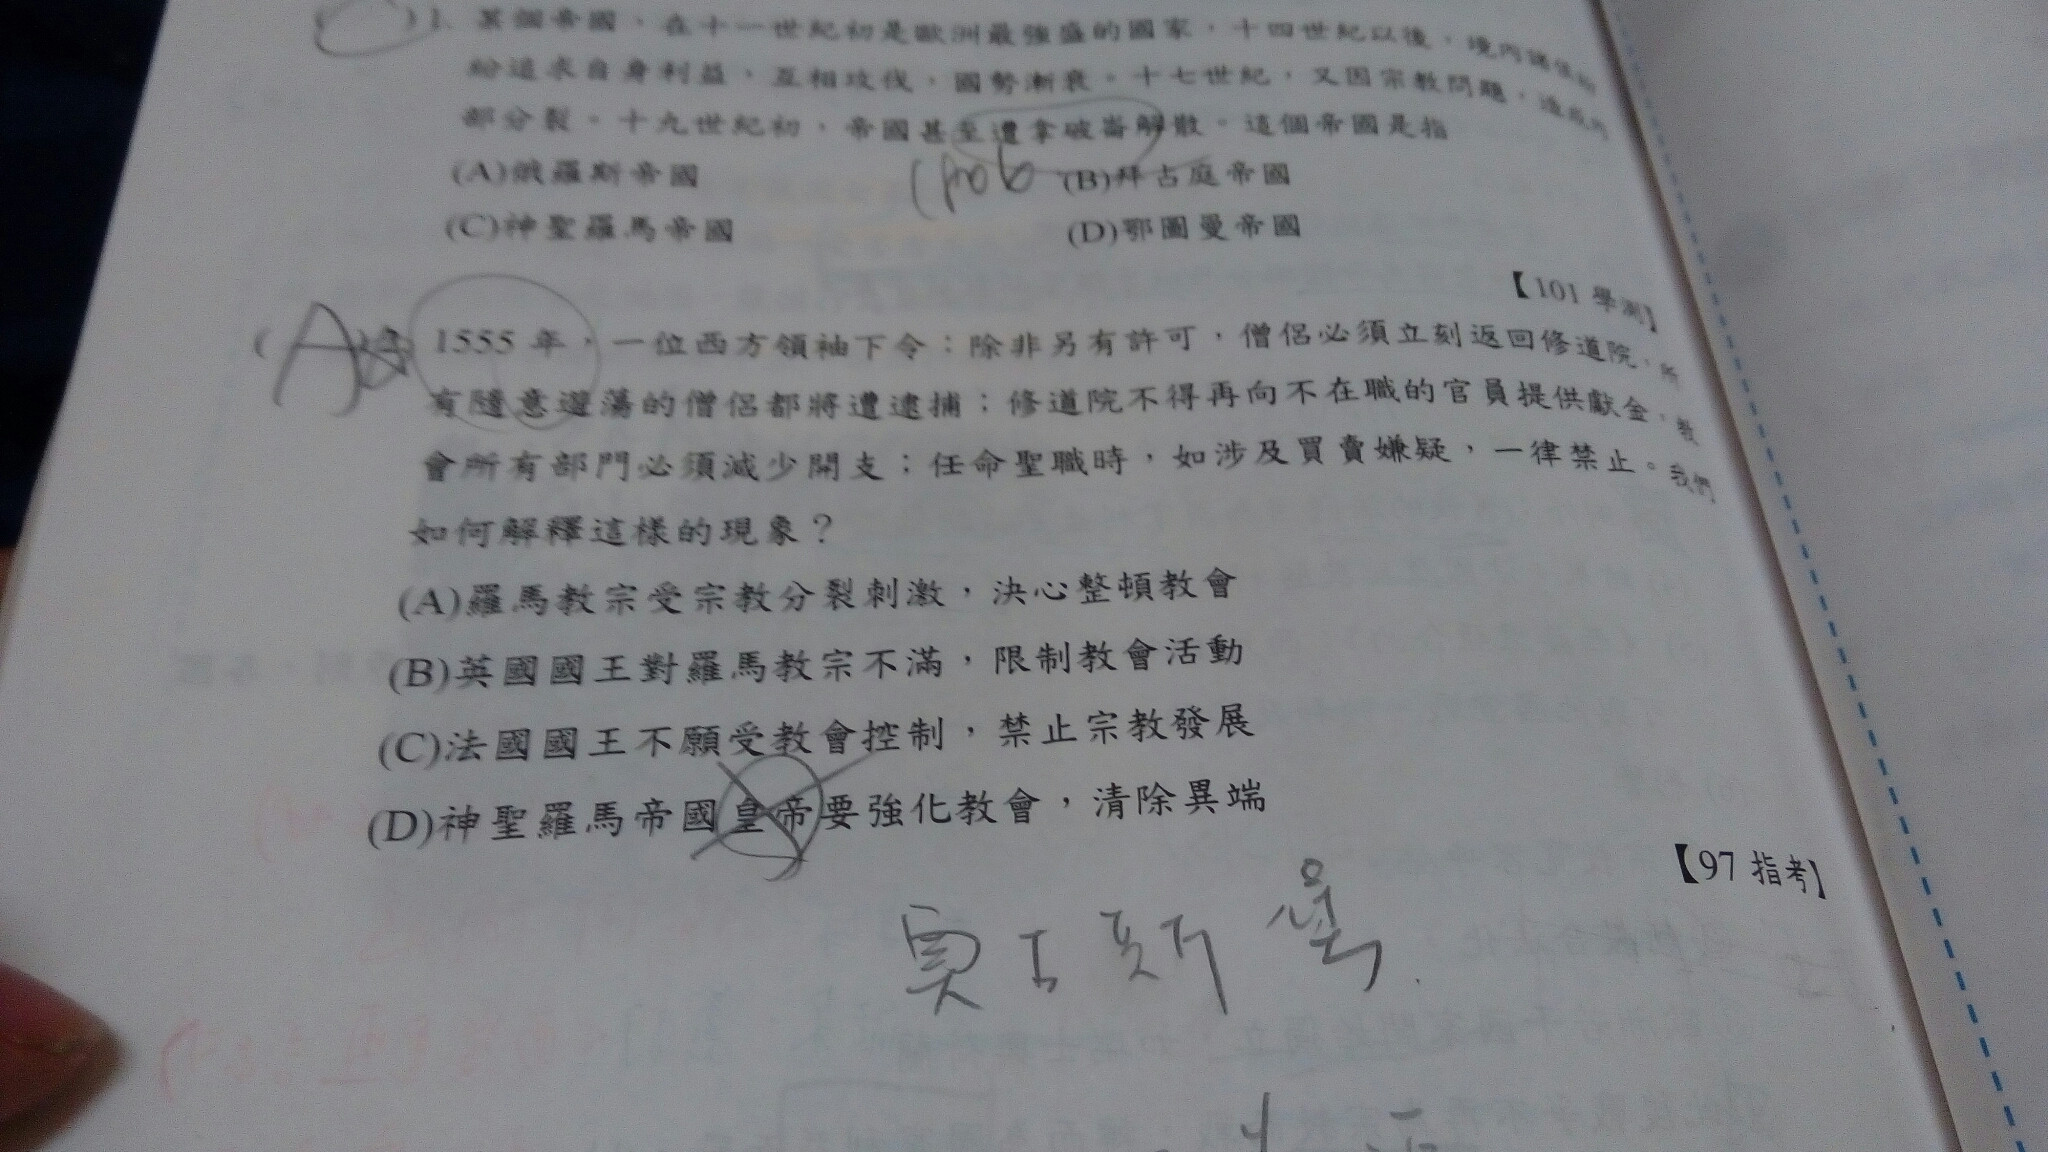 1. 某個帝國，在十一世紀初是歐洲最強盛的國家，十四世紀以後，境內諸侯紛
紛追求自身利益，互相攻伐，國勢漸衰。十七世紀，又因宗教問題，造成內
部分裂。十九世紀初，帝國甚至遭拿破崙解散。這個帝國是指
(A)俄羅斯帝國 (B)拜占庭帝國
1806
(C)神聖羅馬帝國 (D)鄂圖曼帝國
【101 學測】
(A) 1555 年，一位西方領袖下令：除非另有許可，僧侶必須立刻返回修道院，所
有隨意遊蕩的僧侶都將遭逮捕；修道院不得再向不在職的官員提供獻金，教
會所有部門必須減少開支；任命聖職時，如涉及買賣嫌疑，一律禁止。我們
如何解釋這樣的現象？
(A)羅馬教宗受宗教分裂刺激，決心整頓教會
(B)英國國王對羅馬教宗不滿，限制教會活動
(C)法國國王不願受教會控制，禁止宗教發展
(D)神聖羅馬帝國皇帝要強化教會，清除異端
【97 指考】
奧古斯堡